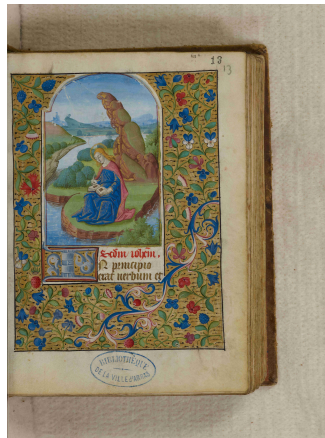 13
13
Scdm iohem.
N principio
erat verbum et
BIBLIOTHÈQUE
DE LA VILLE D'